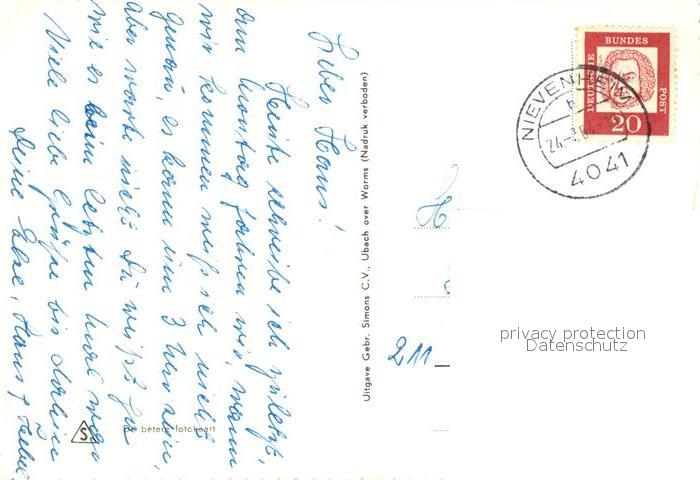 Lieber Hans!
Heute schreibe ich zuletzt,
am Montag fahren wir, wann
wir kommen weiß ich nicht
genau, es kann um 3 Uhr sein,
aber warte nicht. Du weißt ja
wie es beim letzten mal war
Viele liebe Grüße bis dahin
Deine Else, Hans
De betere fotokaart
S
Uitgave Gebr. Simons C.V., Ubach over Worms (Nadruk verboden)
H
211
DEUTSCHE BUNDES POST
20
NIEVENHEIM
b
4041
privacy protection
Datenschutz